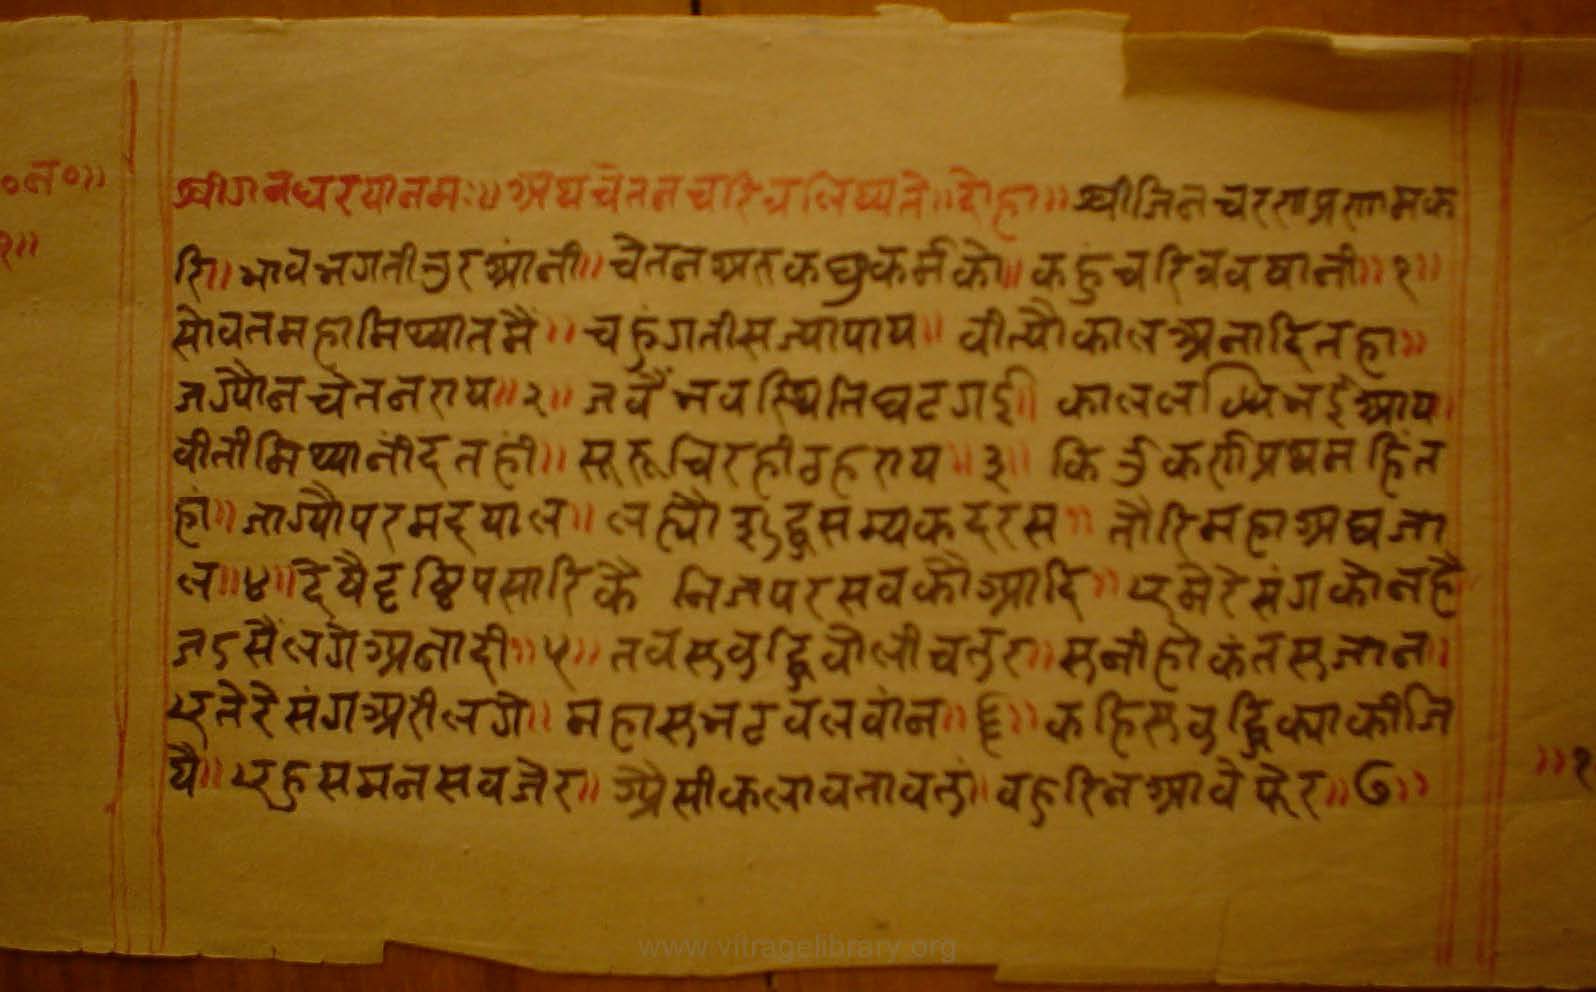 ०न०॥
१॥
श्रीगनधरयानमः॥ अथ चेतनचरित्र लिष्यते॥ दोहा॥ श्रीजिनचरणप्रणामक
रि॥ भावभगतीउरआंनी॥ चेतनअरु कछुकर्मकौ॥ कहुं चरित्रवषानी॥ १॥
सोवतमहामिथ्यातमैं॥ चहुंगतीसज्यापाय॥ वीत्यौकालअनादितहा॥
जग्यौनचेतनराय॥ २॥ जवैंभवस्थितिघटगई॥ काललब्धिभईआय॥
वीतीमिथ्यानींदतहीं॥ सूरूचिरहीठहराय॥ ३॥ किउकर्णप्रथमहिंत
हां॥ जाग्यौपरमदयाल॥ लह्यौशुद्धसम्यकदरस॥ तौरिमहाअघजा
ल॥ ४॥ देषैदृष्टिपसारिकै निजपरसवकौआदि॥ एमेरेसंगकोनहै
जडसैंलगेअनादी॥ ५॥ तवसुवुद्धिवोलीचतुर॥ सुनीहोकंतसुजान॥
एतेरेसंगअरीलगे॥ महासुभटवलवांन॥ ६॥ कहिसुवुद्धिक्याकीजि
यै॥ एहुसमनसवजेर॥ अैसीकलावतावतुं॥ वहुरिनआवेफेर॥ ७॥
॥१
www.vitragelibrary.org